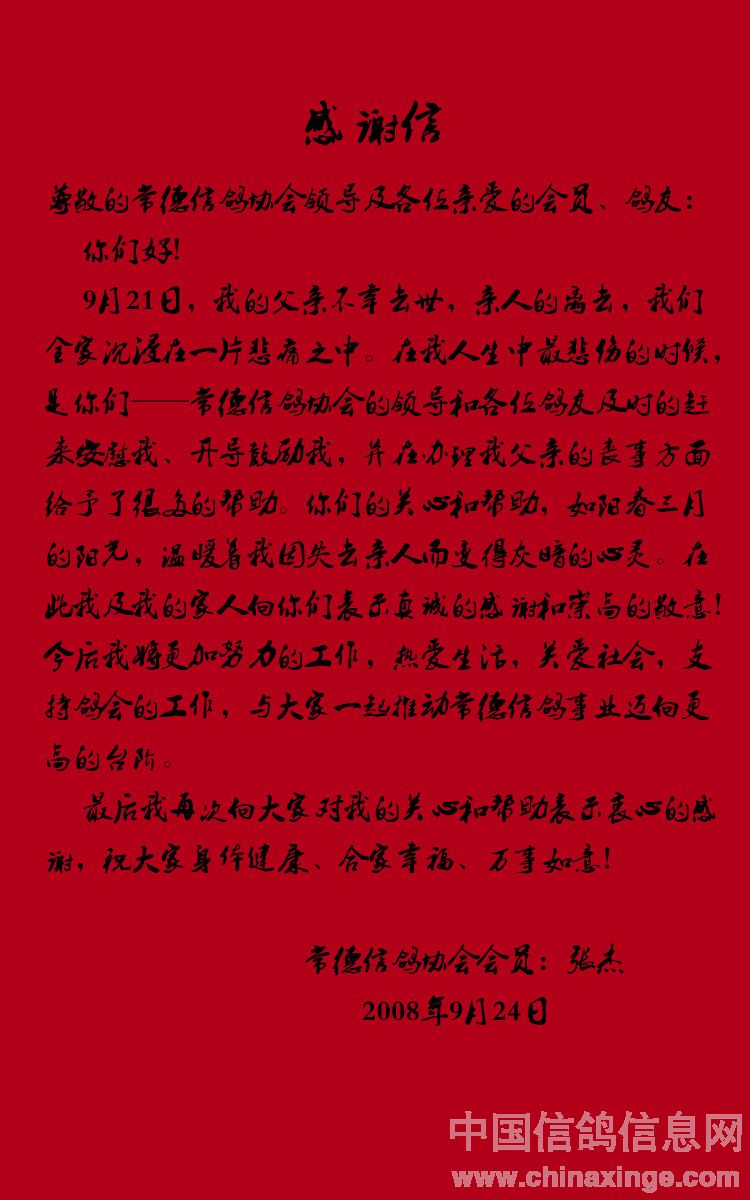 感谢信
尊敬的常德信鸽协会领导及各位亲爱的会员、鸽友：
你们好！
9月21日，我的父亲不幸去世，亲人的离去，我们
全家沉浸在一片悲痛之中。在我人生中最悲伤的时候，
是你们——常德信鸽协会的领导和各位鸽友及时的赶
来安慰我、开导鼓励我，并在办理我父亲的丧事方面
给予了很多的帮助。你们的关心和帮助，如阳春三月
的阳光，温暖着我因失去亲人而变得灰暗的心灵。在
此我及我的家人向你们表示真诚的感谢和崇高的敬意！
今后我将更加努力的工作，热爱生活，关爱社会，支
持鸽会的工作，与大家一起推动常德信鸽事业迈向更
高的台阶。
最后我再次向大家对我的关心和帮助表示衷心的感
谢，祝大家身体健康、合家幸福、万事如意！
常德信鸽协会会员：张杰
2008年9月24日
中国信鸽信息网
www.chinaxinge.com